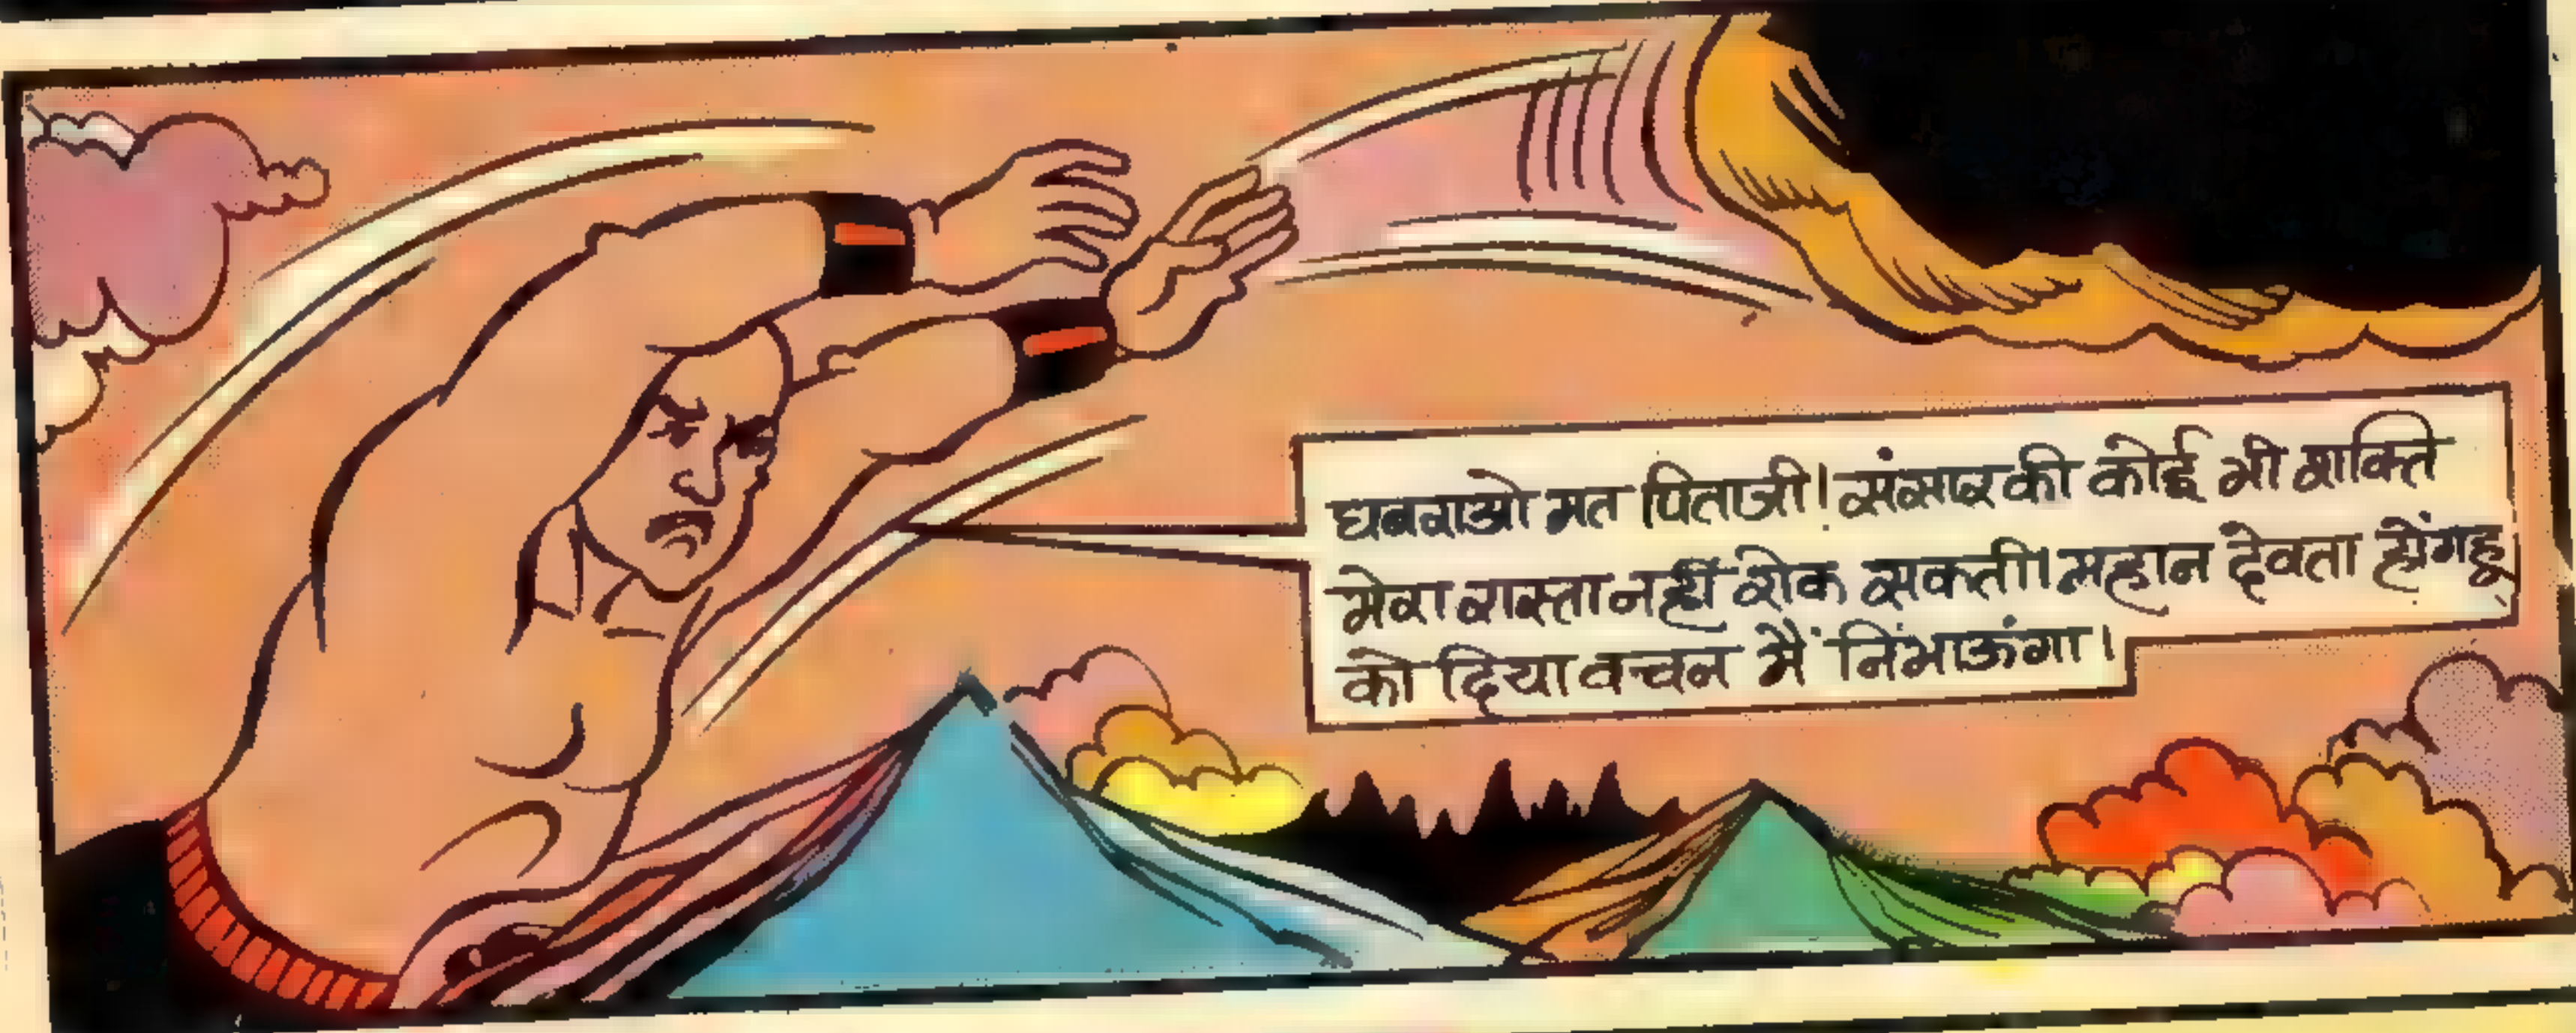 घबराओ मत पिताजी! संसार की कोई भी शक्ति
मेरा रास्ता नहीं रोक सकती। महान देवता होंगहू
को दिया वचन मैं निभाऊंगा।